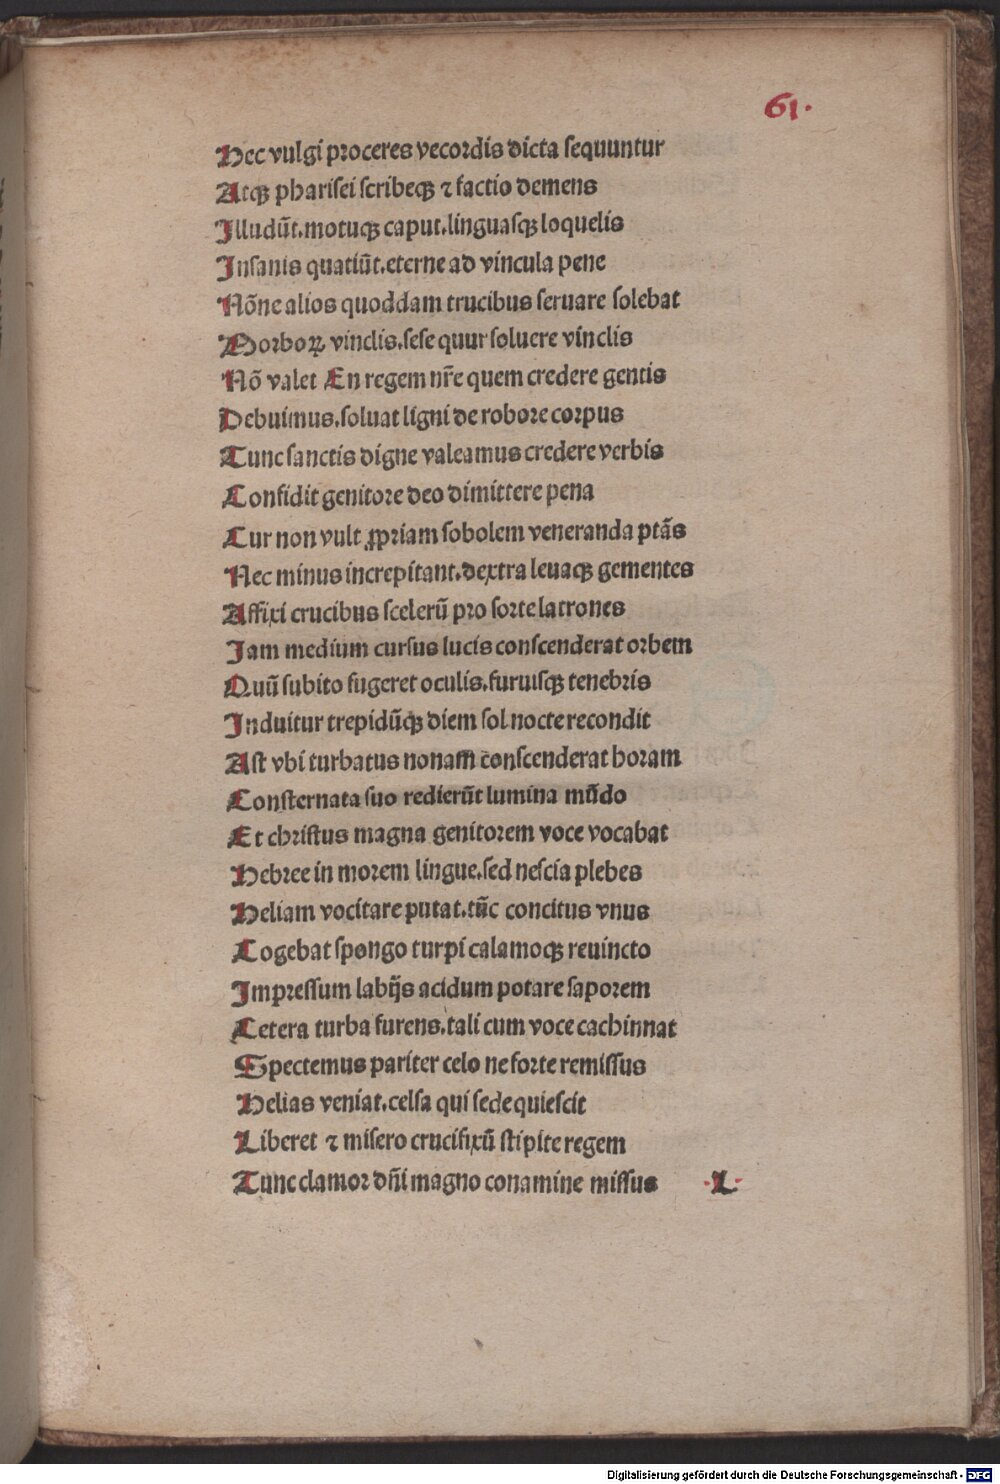 61.
Hec vulgi proceres vecordis dicta sequuntur
Atqꝫ pharisei scribeqꝫ ⁊ factio demens
Illudūt.motuqꝫ caput.linguasqꝫ loquelis
Insanis quatiūt.eterne ad vincula pene
Nōne alios quoddam trucibus seruare solebat
Morboꝝ vinclis.sese quur soluere vinclis
Nō valet En regem nr̄e quem credere gentis
Debuimus.soluat ligni de robore corpus
Tunc sanctis digne valeamus credere verbis
Confidit genitore deo dimittere pena
Cur non vult ꝓpriam sobolem veneranda ptās
Nec minus increpitant.dextra leuaqꝫ gementes
Affixi crucibus scelerū pro sorte latrones
Iam medium cursus lucis conscenderat orbem
Quū subito fugeret oculis.furuisqꝫ tenebris
Induitur trepidūqꝫ diem sol nocte recondit
Ast vbi turbatus nonam conscenderat horam
Consternata suo redierūt lumina mūdo
Et christus magna genitorem voce vocabat
Hebree in morem lingue.sed nescia plebes
Heliam vocitare putat.tūc concitus vnus
Cogebat spongo turpi calamoqꝫ reuincto
Impressum labijs acidum potare saporem
Cetera turba furens.tali cum voce cachinnat
Spectemus pariter celo ne forte remissus
Helias veniat.celsa qui sede quiescit
Liberet ⁊ misero crucifixū stipite regem
Tunc clamor dn̄i magno conamine missus ·L·
Digitalisierung gefördert durch die Deutsche Forschungsgemeinschaft - DFG